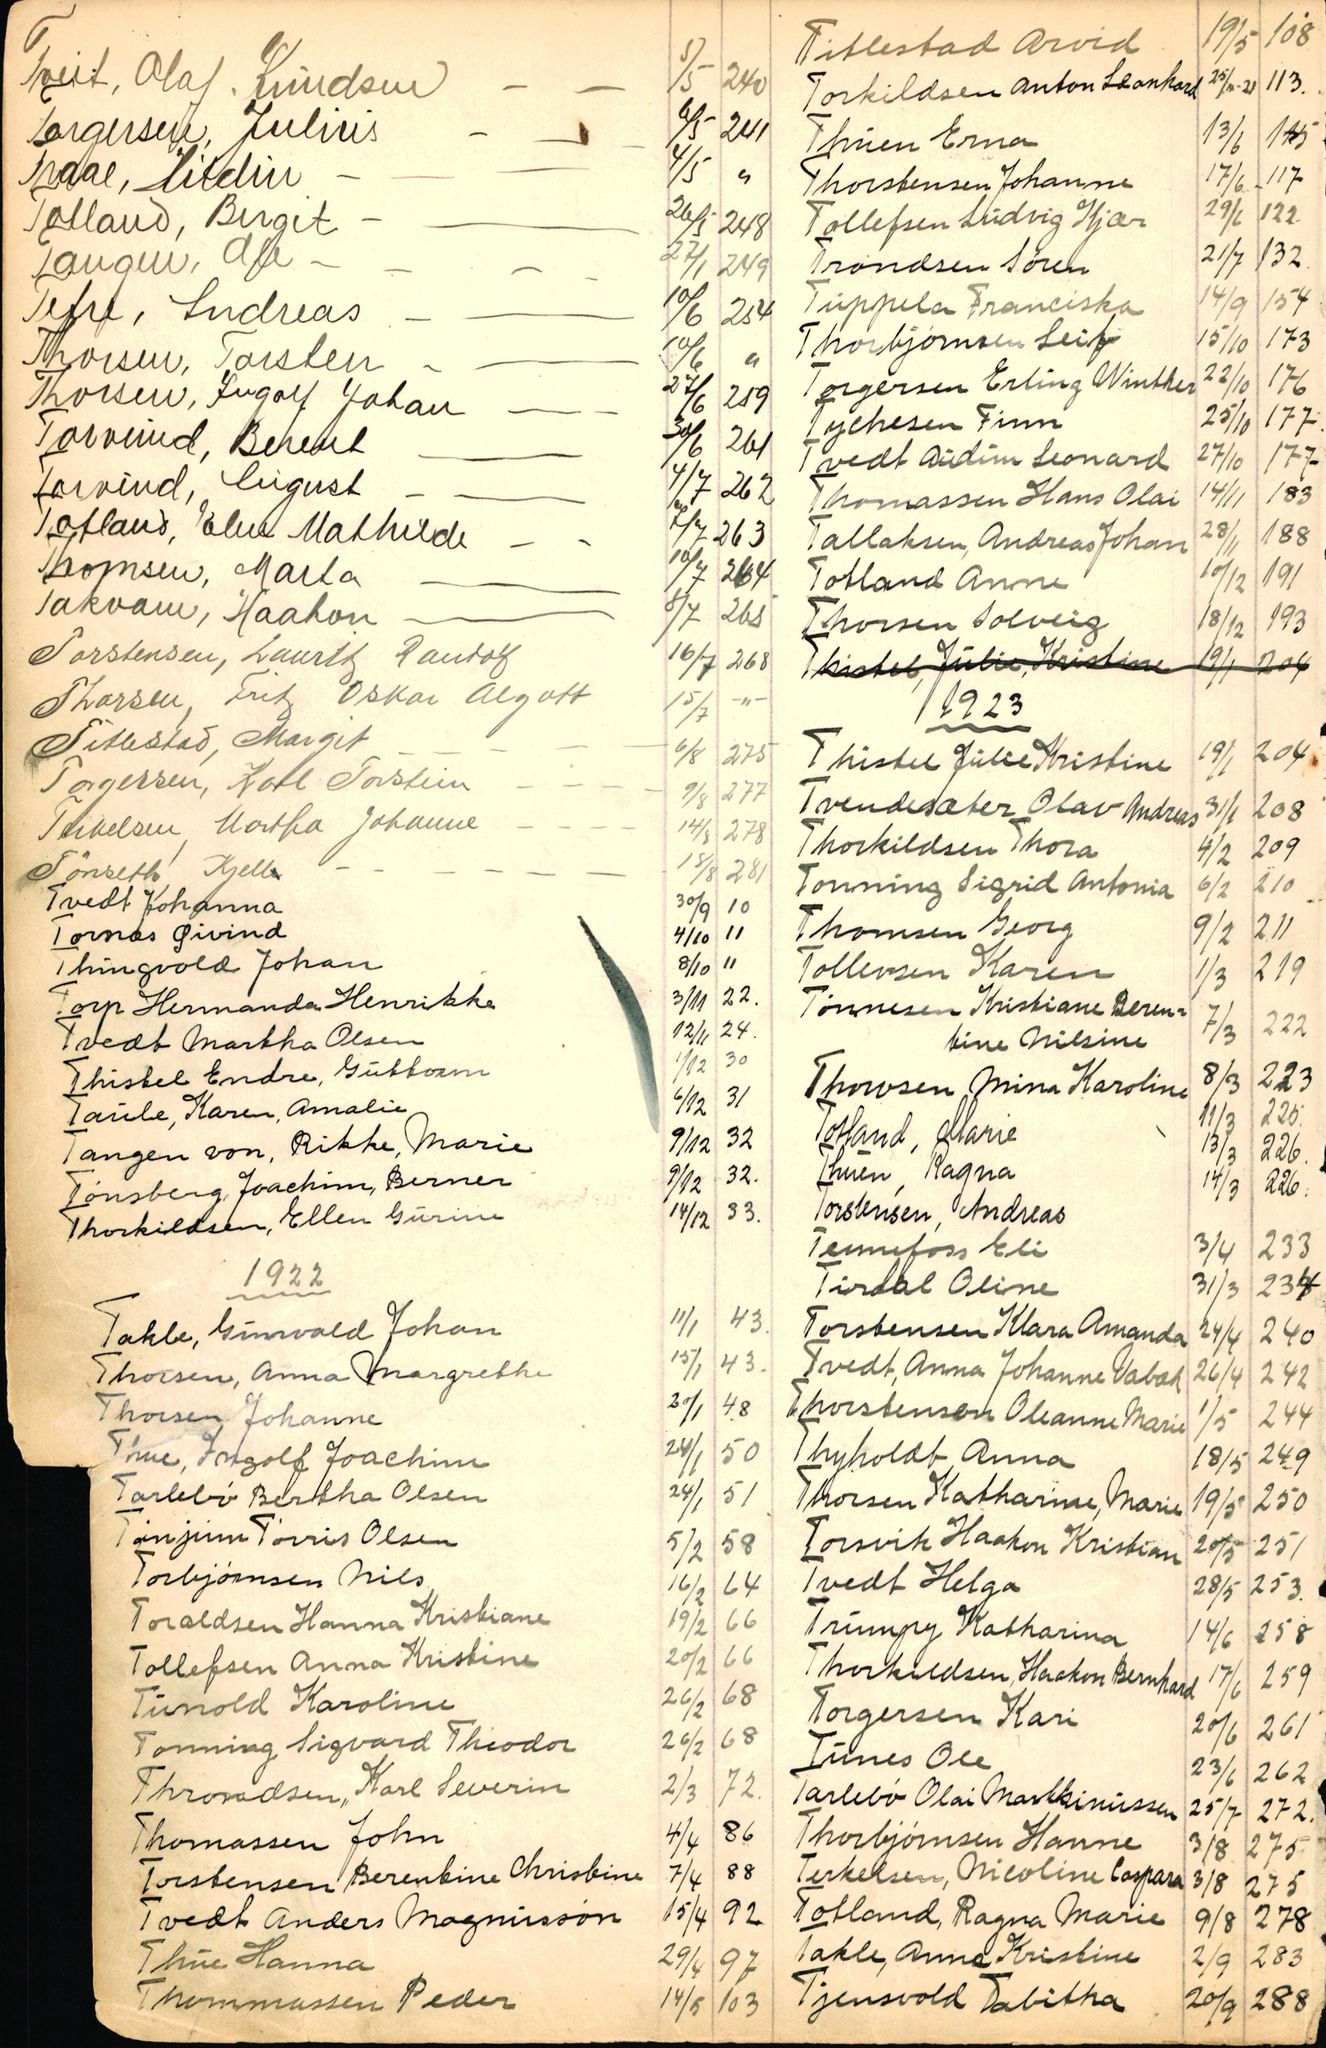 T
Tveit, Olaf Knudsen — — 5/5 240
Torgersen, Julius - — 6/5 241
Traae, — — — 4/5 "
Totland, Birgit - — 26/5 248
Tangen, - - - - 27/1 249
Tefre, Andreas - — 10/6 254
Thorsen, Torsten - — 10/6 "
Thorsen, Ingolf Johan — — 27/6 259
Torvund, Berent — — 30/6 261
Torvund, August - — 4/7 262
Totland, Elen Mathilde - - 7/7 263
Thomsen, Marta — — 10/7 264
Takvam, Haakon — — 8/7 265
Torstensen, Lauritz Randolf 16/7 268
Thorsen, Fritz Oskar Algott 15/7 -"-
Titlestad, Margit - - - - 6/8 275
Torgersen, Karl Torstein - - - - 9/8 277
Terkelsen, Martha Johanne - - - - 14/8 278
Tönseth Kjell - - - - - - 15/8 281
Tvedt Johanna 30/9 10
Tornas Øivind 4/10 11
Thingvold Johan 8/10 11
Torp Hermanda Henrikke 3/11 22.
Tvedt Martha Olsen 12/11 24.
Thistel Endre, Guttorm 1/12 30
Taule, Karen, Amalie 6/12 31
Tangen von, Rikke, Marie 9/12 32
Tønsberg, Joachim, Berner 9/12 32.
Thorkildsen, Ellen Gurine 14/12 33.
1922
Takle, Gunvald Johan 11/1 43.
Thorsen, Anna Margrethe 15/1 43.
Thorsen Johanne 20/1 48
Thue, Ingolf Joachim 24/1 50
Tarlebø Bertha Olsen 24/1 51
Tønjum Torris Olsen 5/2 58
Torbjørnsen Nils 16/2 64
Toraldsen Hanna Kristiane 19/2 66
Tollefsen Anna Kristine 20/2 66
Tunold Karoline 26/2 68
Tonning Sigvard Theodor 26/2 68
Throndsen, Karl Severin 2/3 72.
Thomassen John 4/4 86
Torstensen Berentine Christine 7/4 88
Tvedt Anders Magnusson 15/4 92
Thue Hanna 29/4 97
Thommassen Peder 14/5 103
Titlestad Arvid 19/5 108
Torkildsen Anton Leonhard 113.
Thuen Erna 13/6 115
Thorstensen Johanne 17/6 117
Tollefsen Ludvig Hjær 29/6 122
Trondsen Søren 21/7 132
Tuppela Franciska 14/9 154
Thorbjørnsen Leif 15/10 173
Torgersen Erling Winther 22/10 176
Tychesen Finn 25/10 177.
Tvedt Audun Leonard 27/10 177
Thomassen Hans Olai 14/11 183
Tallaksen, Andreas Johan 28/11 188
Totland Anne 10/12 191
Thorsen Solveig 18/12 193
Thistel, Julie, Kristine 19/1 204
1923
Thistel Julie Kristine 19/1 204
Tvendesæter Olav Andreas 31/1 208
Thorkildsen Thora 4/2 209
Tonning Sigrid Antonia 6/2 210
Thomsen Georg 9/2 211
Tollevsen Karen 1/3 219
Tønnesen Kristiane Beren-
tine Nilsine 7/3 222
Thorvsen, Mina Karoline 8/3 223
Totland, Marie 11/3 225.
Thuen, Ragna 13/3 226.
Torstensen, Andreas 14/3 226.
Tennefoss Eli 3/4 233
Tirdal Oline 31/3 234
Torstensen Klara Amanda 24/4 240
Tvedt, Anna Johanne Vabak 26/4 242
Thorstensen Oleanne Marie 1/5 244
Thyholdt, Anna 18/5 249
Thorsen Katharine, Marie 19/5 250
Torsvik Haakon Kristian 20/5 251
Tvedt Helga 28/5 253.
Trumpy Katharina 14/6 258
Thorkildsen, Haakon Bernhard 17/6 259
Torgersen Kari 20/6 261
Tunes Ole 23/6 262
Tarlebø Olai Martinussen 25/7 272.
Thorbjørnsen Hanne 3/8 275
Terkelsen, Nicoline Caspara 3/8 275
Totland, Ragna Marie 9/8 278
Takle, Anna Kristine 2/9 283
Tjensvold Tabitha 20/9 288